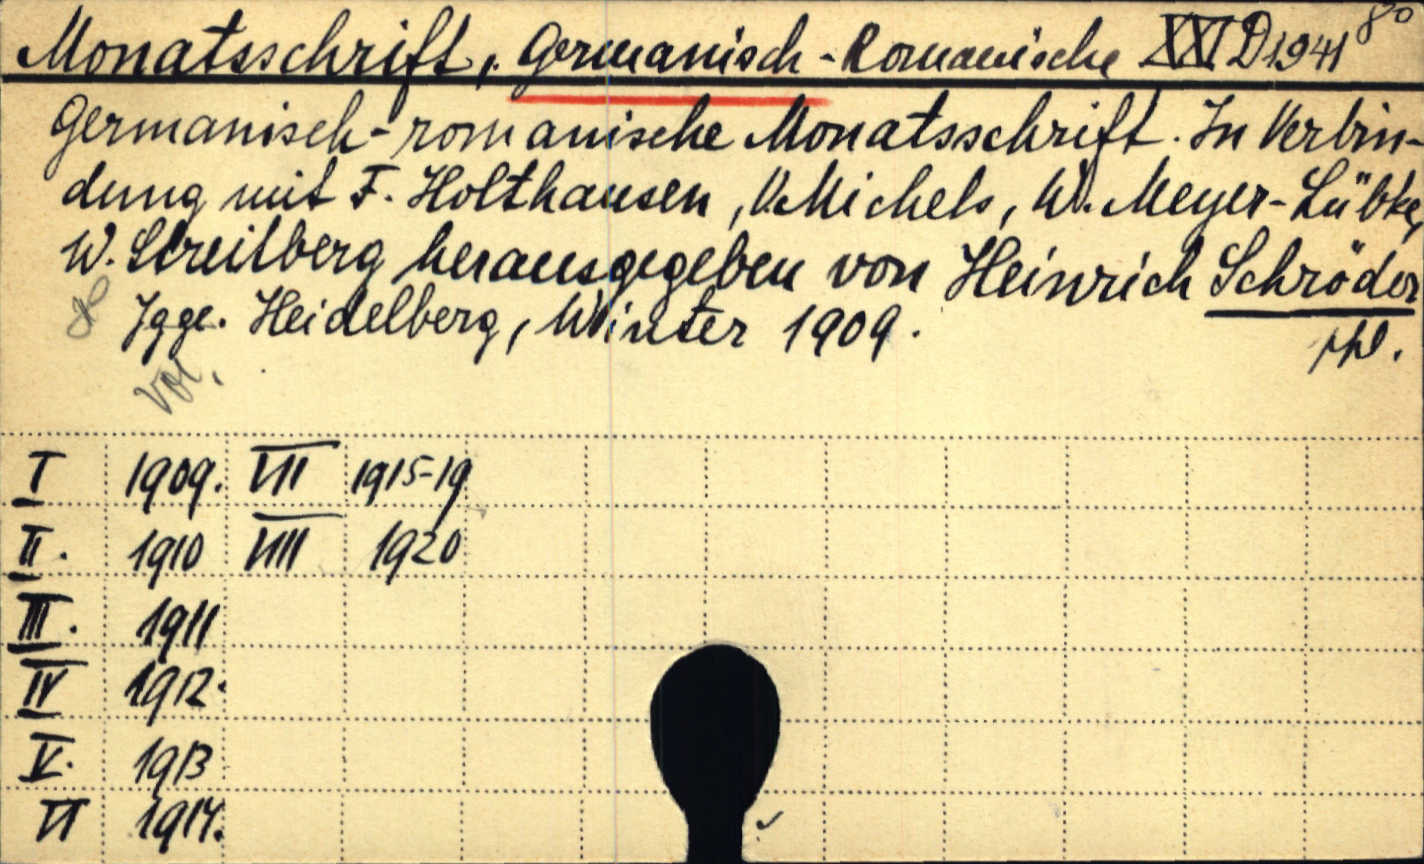 Monatsschrift, Germanisch-Romanische XXI D 1941 8o
Germanisch-romanische Monatsschrift. In Verbin-
dung mit F. Holthausen, V. Michels, W. Meyer-Lübke,
W. Streitberg herausgegeben von Heinrich Schröder
Jgge. Heidelberg, Winter 1909.
phl.
Vol.
I 1909. VII 1915-19
II. 1910 VIII 1920
III. 1911
IV 1912.
V. 1913
VI 1914.